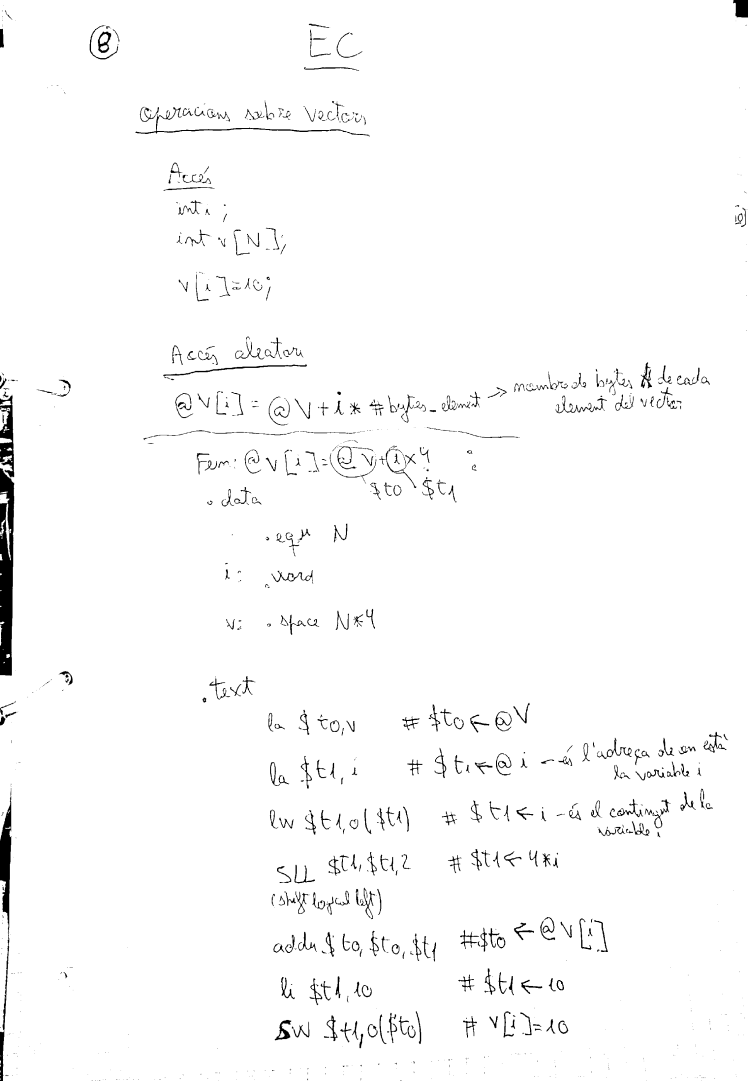 8
EC
Operacions sobre vectors
Accés
int i;
int v[N];
v[i]=10;
Accés aleatori
@V[i] = @V + i * #bytes_element → nombre de bytes de cada
element del vector
Fem: @v[i]=@v+i×4 :
$t0 $t1
.data
.equ N
i: .word
v: .space N*4
.text
la $t0,v # $t0 ← @V
la $t1, i # $t1 ← @i - és l'adreça de on està
la variable i
lw $t1,0($t1) # $t1 ← i - és el contingut de la
variable i
SLL $t1,$t1,2 # $t1 ← 4*i
(shift logical left)
addu $t0, $t0, $t1 #$t0 ← @V[i]
li $t1, 10 # $t1 ← 10
SW $t1,0($t0) # V[i]=10